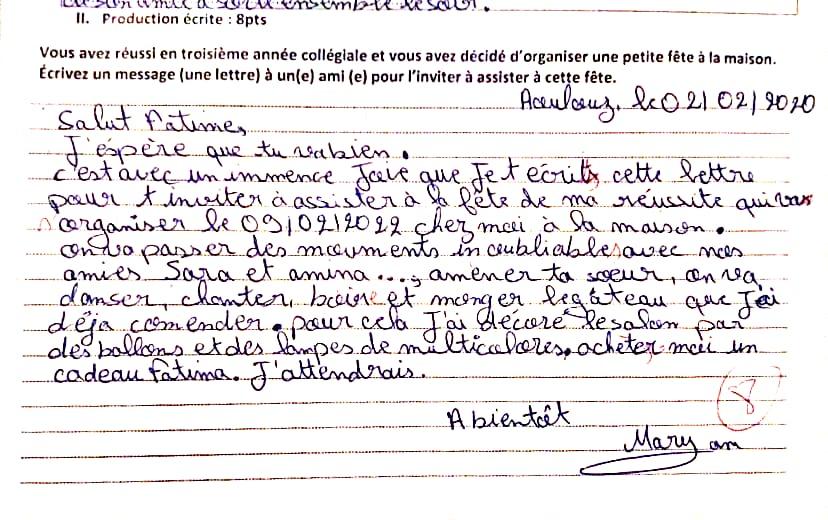 amie à
II. Production écrite : 8pts
Vous avez réussi en troisième année collégiale et vous avez décidé d'organiser une petite fête à la maison.
Écrivez un message (une lettre) à un(e) ami (e) pour l'inviter à assister à cette fête.
le 02/02/2020
Salut Fatima,
J'espère que tu va bien.
c'est avec un immence Joie que Je t'écrit cette lettre
pour t'inviter à assister à la fête de ma réussite qui vas
s'organiser le 09/02/2022 chez moi à la maison.
on va passer des mouments inoubliables avec mes
amies Sara et amina...., amener ta soeur, on va
danser, chanter, boire et manger le gâteau que J'ai
déja comender. pour cela J'ai décoré le salon par
des ballons et des lampes de multicolores. acheter moi un
cadeau fatima. J'attendrais.
A bientôt
8
Maryam